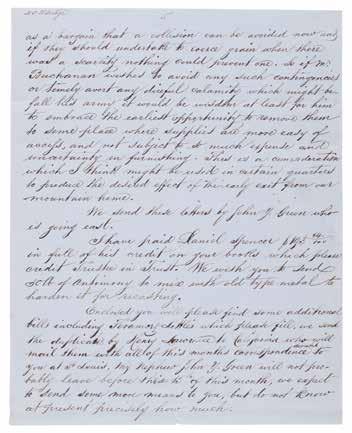 as a bargain that a collision can be avoided now and
if they should undertake to coerce grain when there
was a scarcity nothing could prevent one. So if Mr.
Buchanan wishes to avoid any such contingences
or timely avert any direful calamity which might be-
fall his army it would be wisdom at least for him
to embrace the earliest opportunity to remove them
to some place where supplies are more easy of
access, and not subject to so much expense and
uncertainty in furnishing. This is a consideration
which I think might be used in certain quarters
to produce the desired effect of the early exit from our
mountain home.
We send these letters by John Y Green who
is going east.
I have paid Daniel Spencer
in full of his credit on your books which please
credit Trustee in Trust. We wish you to send
50 lb of Antimony to mix with old type metal to
harden it for recasting.
Enclosed you will please find some additional
bills including which please fill, we send
the duplicate by to who will
mail them with all of this months correspondence to
you at St Louis. My nephew John Y. Green will not pro-
bably leave before the of this month, we expect
to send some more means to you, but do not know
at present precisely how much.